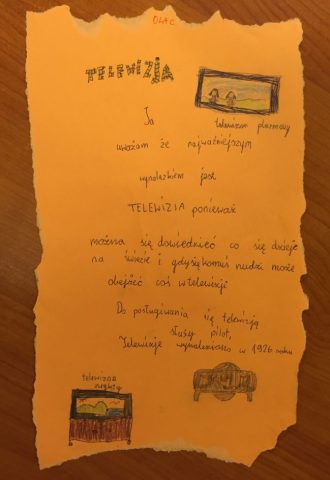 OLA C
TELEWIZJA
telewizor plazmowy
Ja
uważam że najważniejszym
wynalazkiem jest
TELEWIZJA ponieważ
można się dowiednieć co się dzieje
na świecie i gdy się komuś nudzi może
obejżeć coś w telewizji
Do posługiwania się telewizją
służy pilot,
Telewizje wynaleziono w 1926 roku
telewizor
zwykły